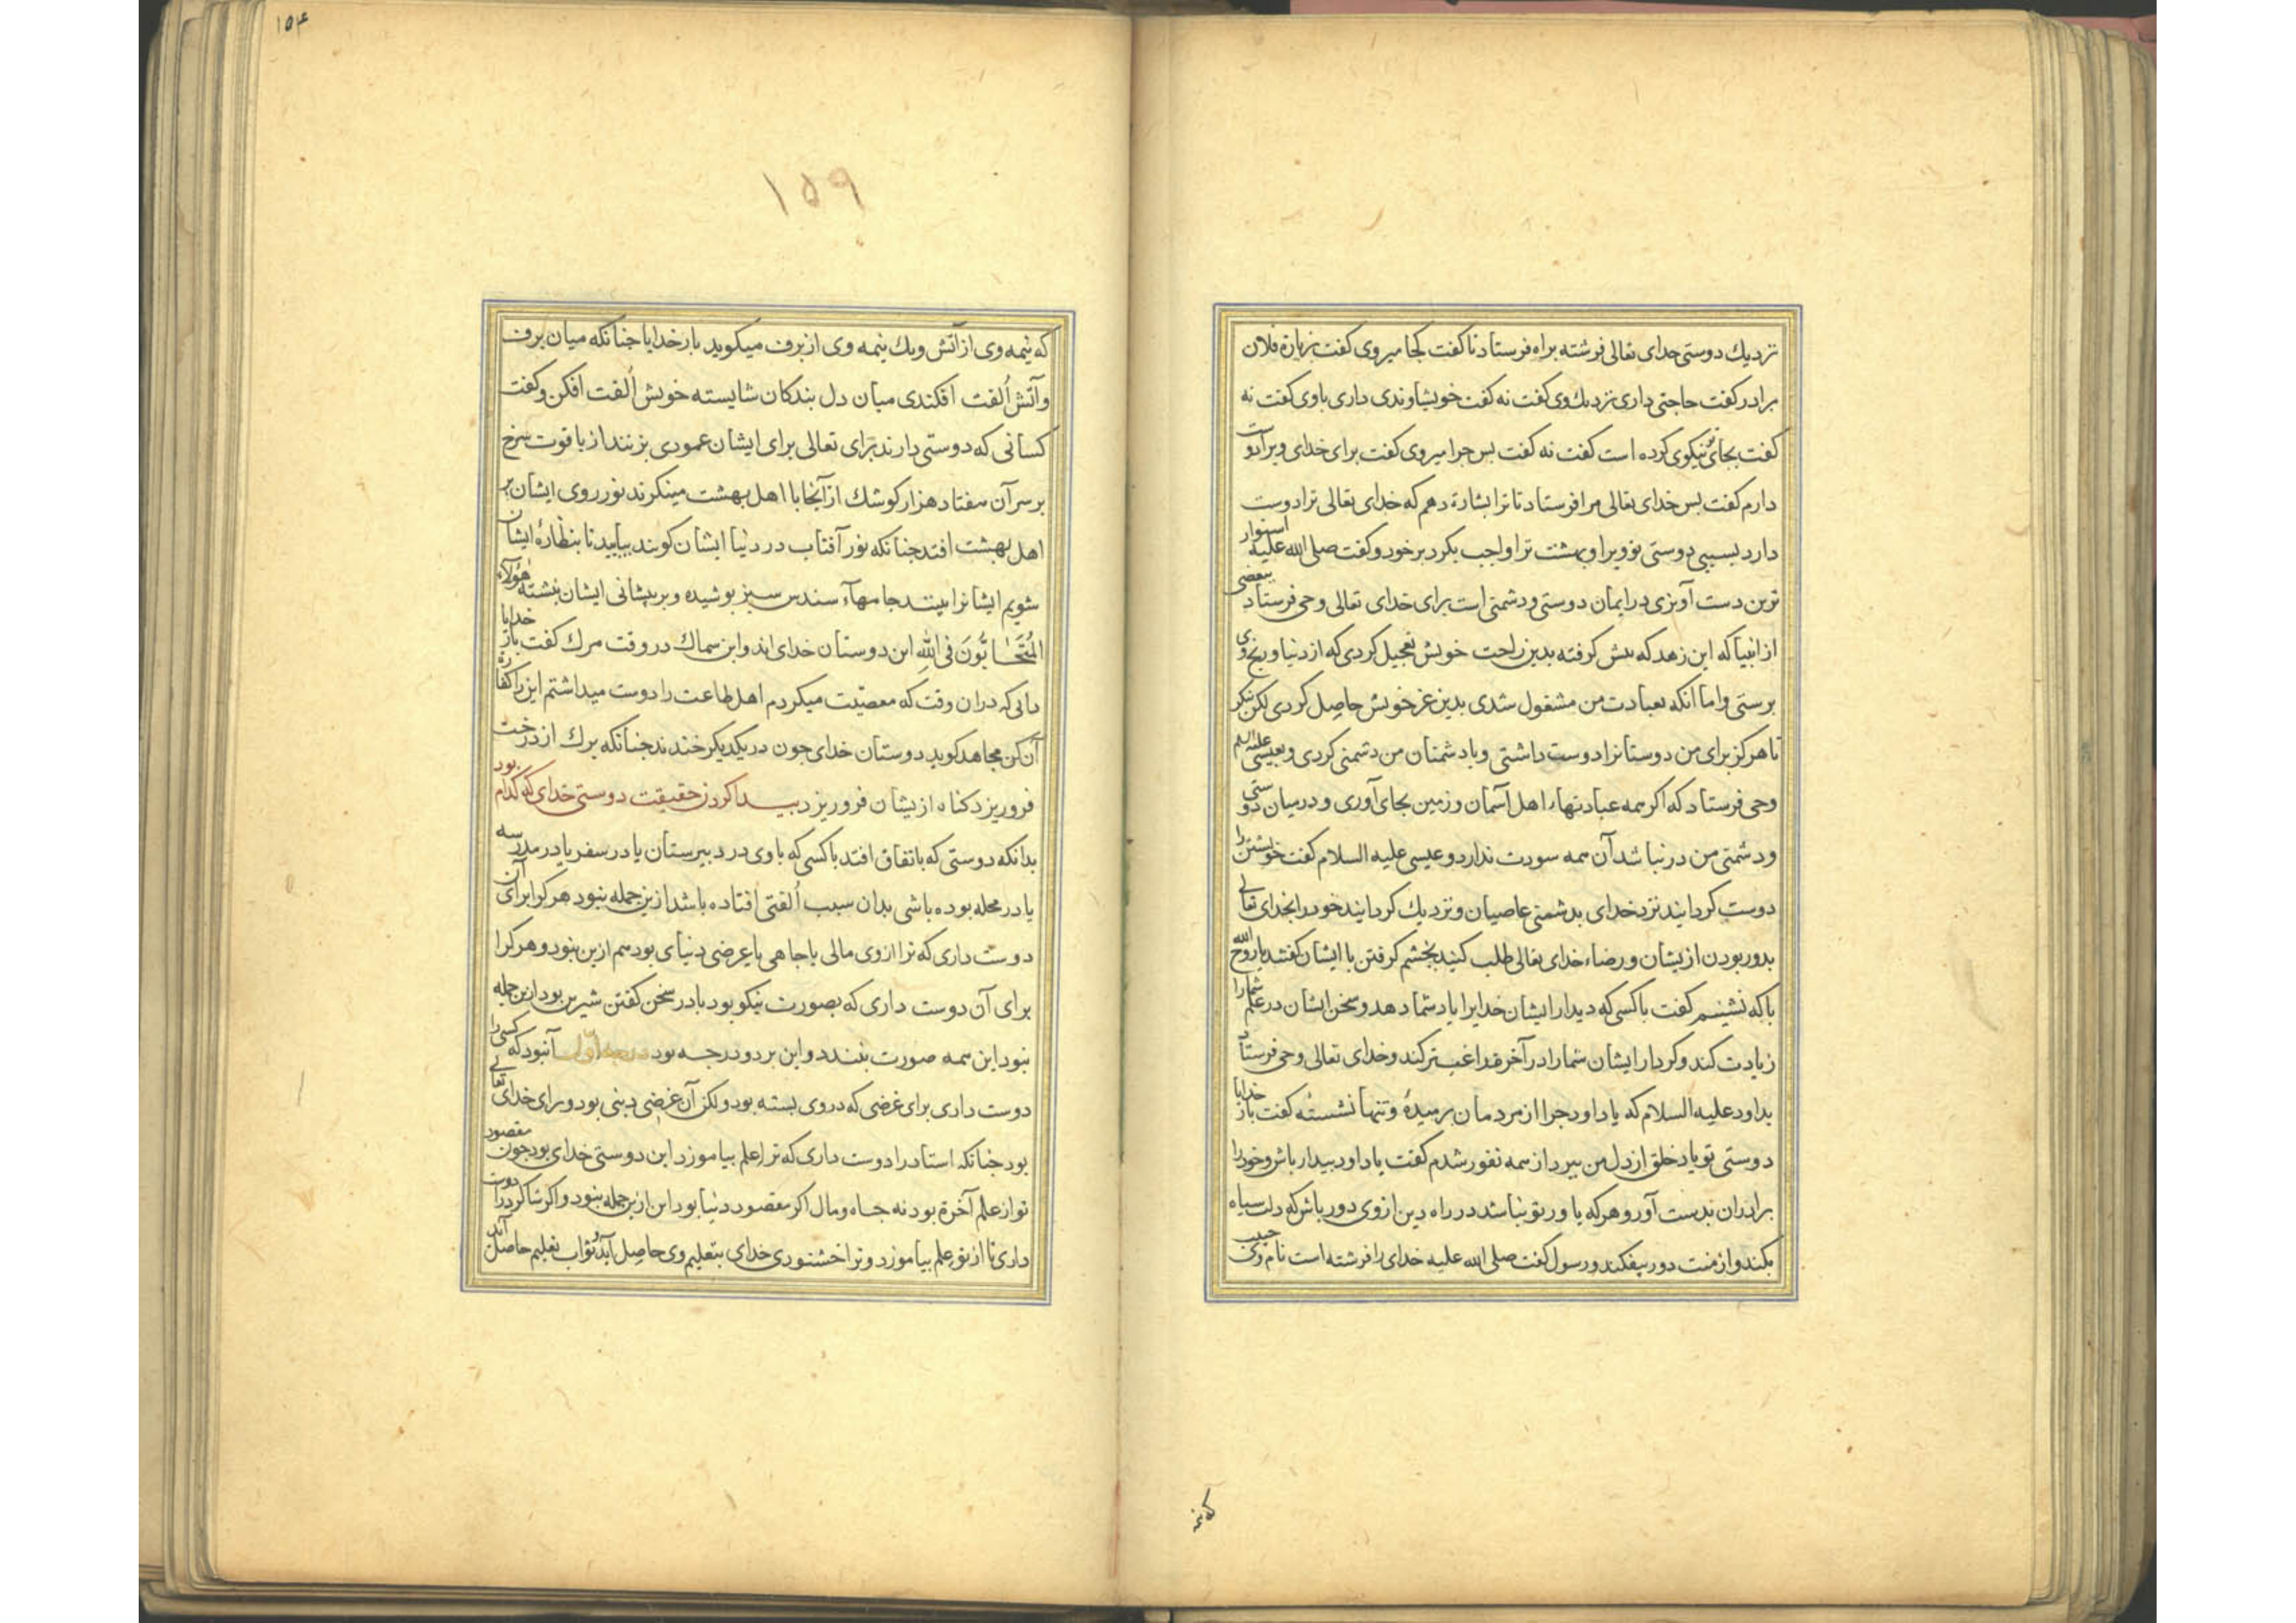 نزدیك دوستی خدای تعالی فرشته براه فرستاد تا کفت کجا میروی کفت بزیارة فلان
برادر کفت حاجتی داری نزدیك وی کفت نه کفت خویشاوندی داری باوی کفت نه
کفت بجای تو نیکوی کرده است کفت نه کفت بس جرا میروی کفت برای خدای ویرا دوست
دارم کفت بس خدای تعالی مرا فرستاد تا ترا بشارة دهم که خدای تعالی ترا دوست
دارد بسببی دوستی تو ویرا و بهشت ترا واجب بکرد بر خود وکفت صلی الله علیه استوار
ترین دست آویزی در ایمان دوستی ودشمنی است برای خدای تعالی وحی فرستاد ببعضی
از انبیا که این زهد که بیش کرفته بدین راحت خویش تعجیل کردی که از دنیا ورنج وی
برستی واما آنکه بعبادت من مشغول شدی بدین عز خویش حاصل کردی لکن بنکر
تا هرکز برای من دوستانرا دوست داشتی وبا دشمنان من دشمنی کردی وبعیسی علیه السلم
وحی فرستاد که اکر همه عبادتهاء اهل آسمان وزمین بجای آوری ودرمیان دوستی
ودشمنی من در نباشد آن همه سودت ندارد وعیسی علیه السلام کفت خویشتن را
دوست کردانیند نزد خدای بدشمنی عاصیان ونزدیك کردانیند خود را بخدای تعالی
بدور بودن از یشان ورضاء خدای تعالی طلب کنید بخشم کرفتن با ایشان کفتند یا روح الله
با که نشینیم کفت با کسی که دیدار ایشان خدایرا یاد شما دهد وسخن ایشان در علم شما را
زیادت کند وکردار ایشان شما را در آخرة راغب تر کند وخدای تعالی وحی فرستاد
بداود علیه السلام که یا داود جرا از مردمان برمیدۀ وتنها نشستۀ کفت بار خدایا
دوستی تو یاد خلق از دل من ببرد از همه نفور شدم کفت یا داود بیدار باش وخود را
برادران بدست آور وهر که یاور تو نباشد در راه دین از وی دور باش که دلت سیاه
بکند واز منت دور بیفکند ورسول کفت صلی الله علیه خدای را فرشته است نام وی حبیب
که نیمه
۱۵۴
۱۵۹
که نیمه وی از آتش ویك نیمه وی از برف میکوید بار خدایا جنانکه میان برف
وآتش اُلفت افکندی میان دل بندکان شایسته خویش اُلفت افکن وکفت
کسانی که دوستی دارند برای تعالی برای ایشان عمودی بزنند از یاقوت سرخ
بر سر آن هفتاد هزار کوشك از آنجا با اهل بهشت مینکرند نور روی ایشان بر
اهل بهشت افتد جنانکه نور آفتاب در دنیا ایشان کویند بیایید تا بنظارۀ ایشان
شویم ایشانرا بینند جامهآء سندس سبز بوشیده وبر بیشانی ایشان نبشته هؤلآء
المُتَحَابُّونَ فی اللهِ این دوستان خدای اند وابن سماك در وقت مرك کفت بار خدایا
دانی که دران وقت که معصیت میکردم اهل طاعت را دوست میداشتم این را کفارة
آن کن مجاهد کوید دوستان خدای جون در یکدیکر خندند جنانکه برك از درخت
فرو ریزد کناه از یشان فرو ریزد بیــدا کردن حقیقت دوستی خدای که کدام بود
بدانکه دوستی که باتفاق افتد با کسی که با وی در دبیرستان یا در سفر یا در مدرسه
یا در محله بوده باشی بدان سبب اُلفتی افتاده باشد ازین جمله نبود هر کرا برای آن
دوست داری که ترا از وی مالی یا جاهی یا غرضی دنیای بود هم ازین نبود وهر کرا
برای آن دوست داری که بصورت نیکو بود یا در سخن کفتن شیرین بود ازین جمله
نبود این همه صورت بنندد واین بر دو درجـه بود درجه اول آنبود که کسی را
دوست داری برای غرضی که در وی بسته بود ولکن آن غرضی دینی بود وبرای خدای تعالی
بود جنانکه استاد را دوست داری که ترا علم بیاموزد این دوستی خدای بود جون مقصود
تو از علم آخرة بود نه جـاه ومال اکر مقصود دنیا بود این ازین جمله نبود واکر شاکرد را دوست
داری تا از تو علم بیاموزد وترا خشنودی خدای بتعلیم وی حاصل آید وثواب تعلیم حاصل آید